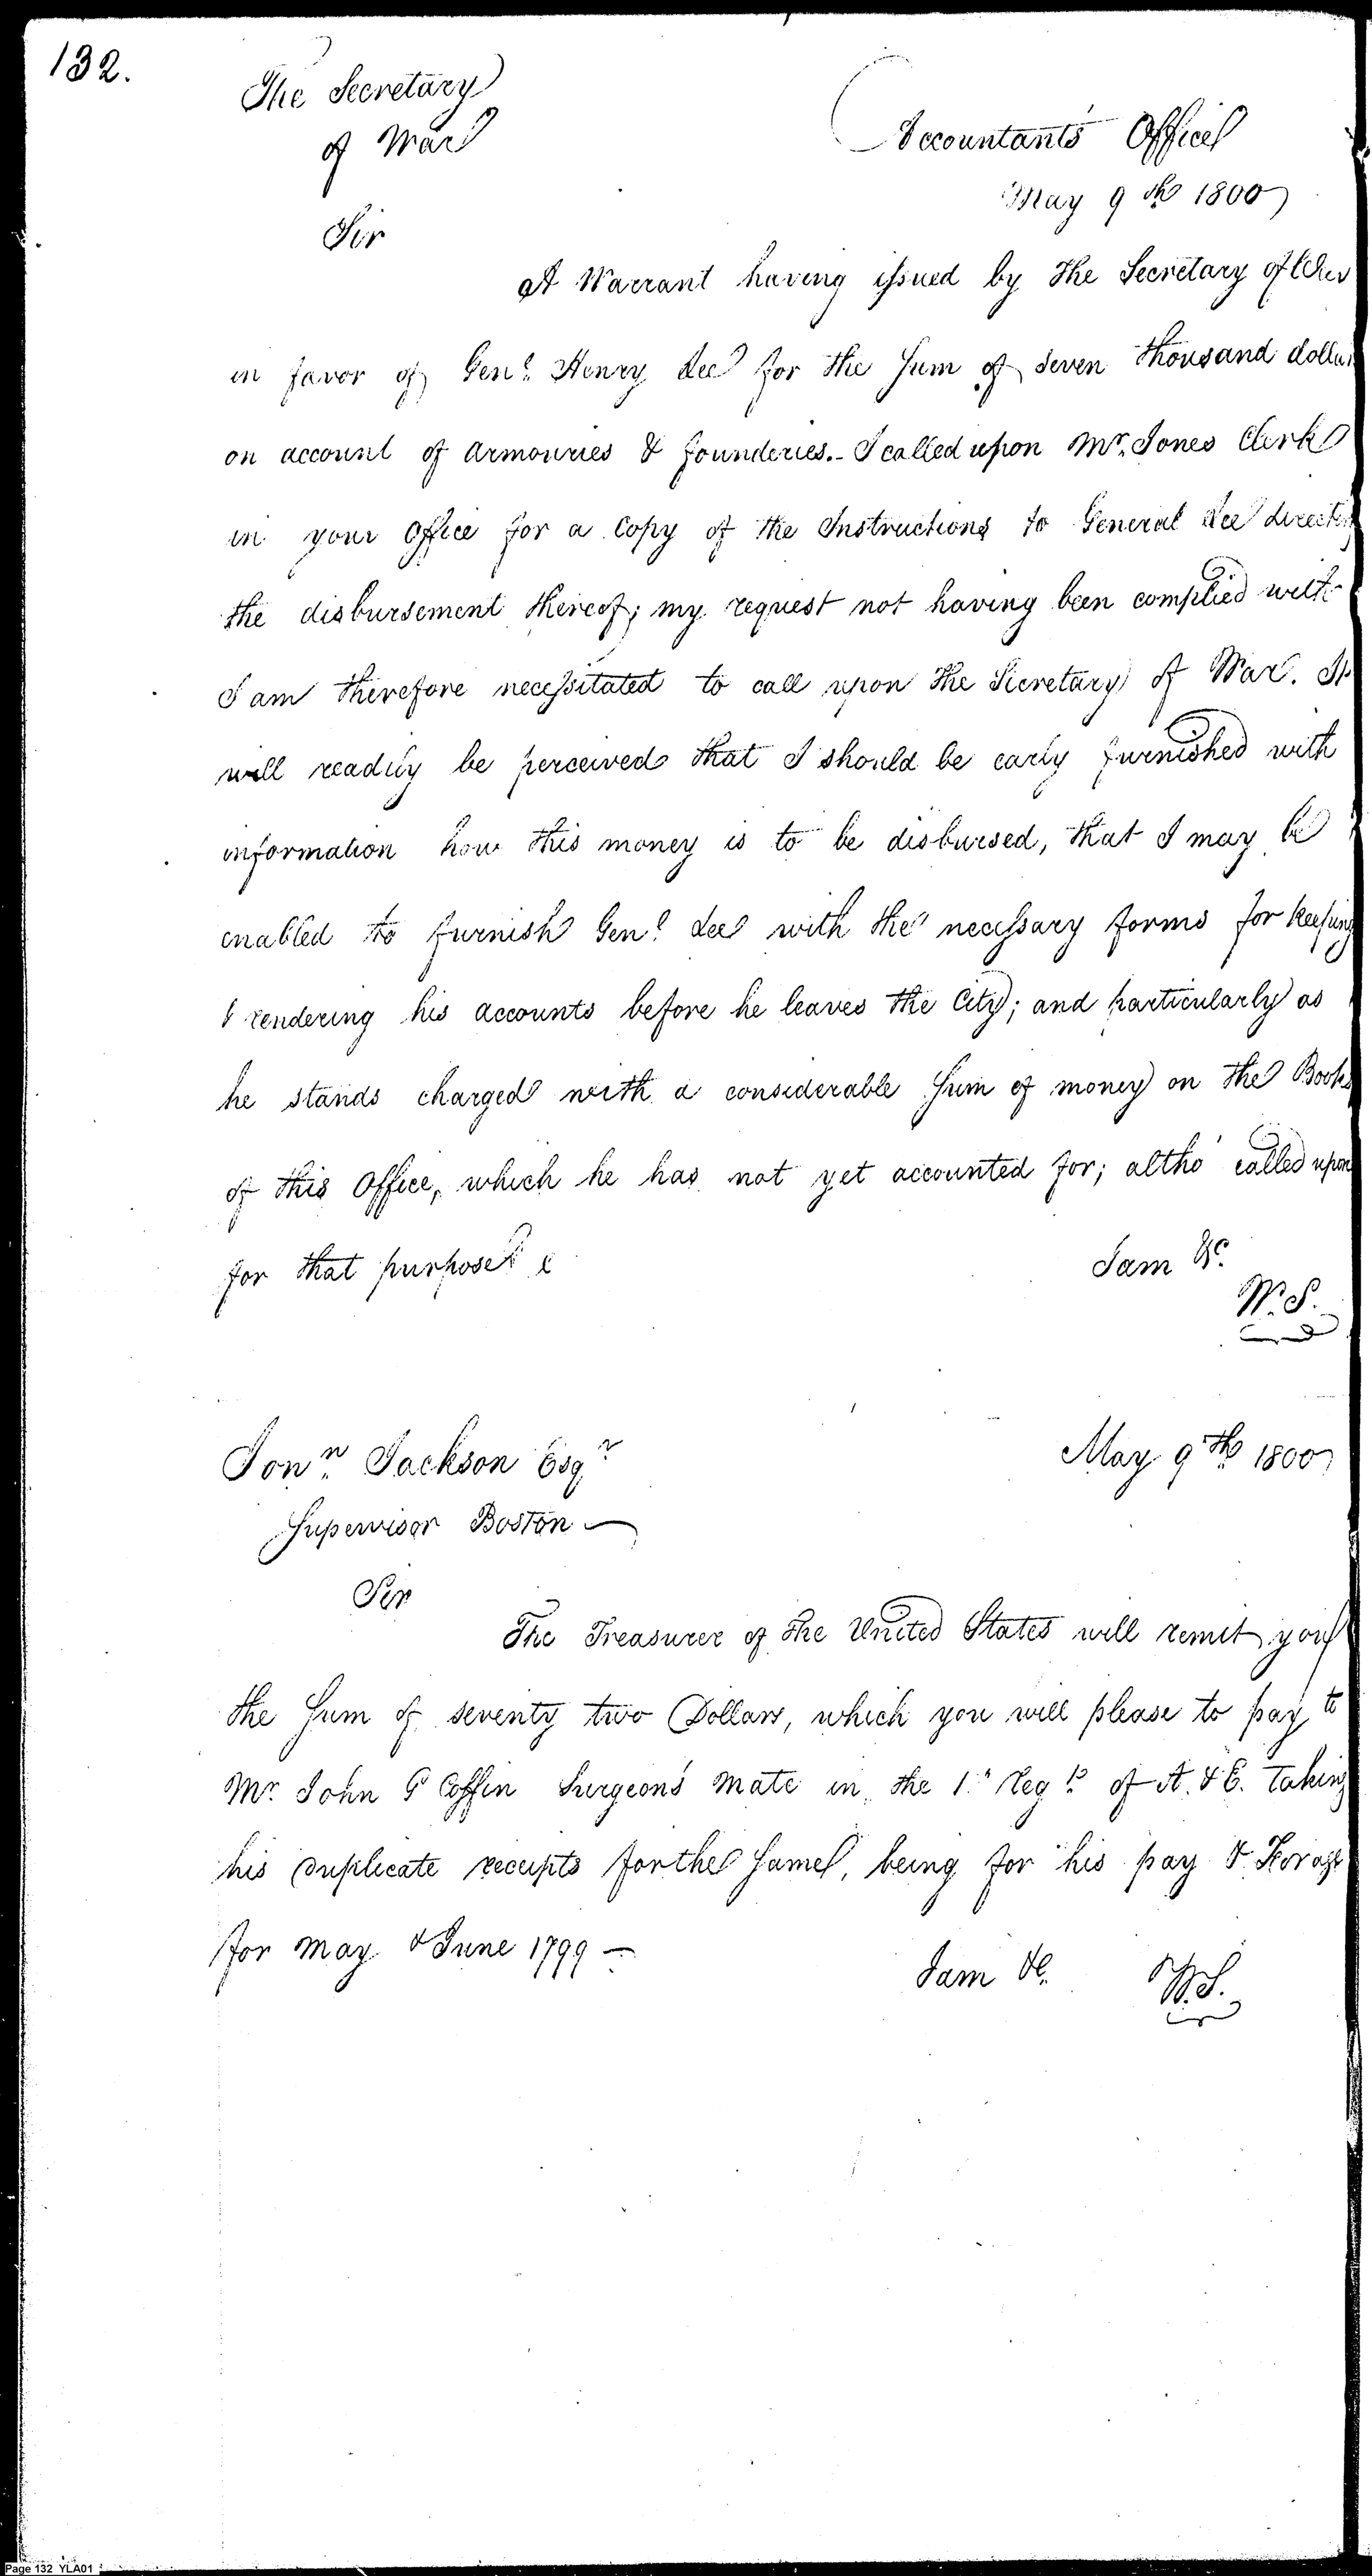 132.
The Secretary
of War
Accountant's Office
May 9th 1800
Sir
A Warrant having issued by the Secretary of War
in favor of Genl. Henry Lee for the Sum of seven thousand dollars
on account of armouries & founderies.- I called upon Mr. Jones Clerk
in your Office for a Copy of the Instructions to General Lee directing
the disbursement thereof; my request not having been complied with
I am therefore necessitated to call upon the Secretary of War. It
will readily be perceived that I should be early furnished with
information how this money is to be disbursed, that I may be
enabled to furnish Genl. Lee with the necessary forms for keeping
& rendering his accounts before he leaves the City; and particularly as
he stands charged with a considerable Sum of money on the Books
of this Office, which he has not yet accounted for; altho' called upon
for that purpose
I am &c.
W. S.
Jonn. Jackson Esqr
May 9th 1800
Supervisor Boston —
Sir
The Treasurer of the United States will remit you
the Sum of seventy two Dollars, which you will please to pay to
Mr. John G Coffin Surgeon's Mate in the 1st Regt. of A. & E. taking
his duplicate receipts for the same, being for his pay & Forage
for may & June 1799 —
I am &c.
W. S.
Page 132 YLA01